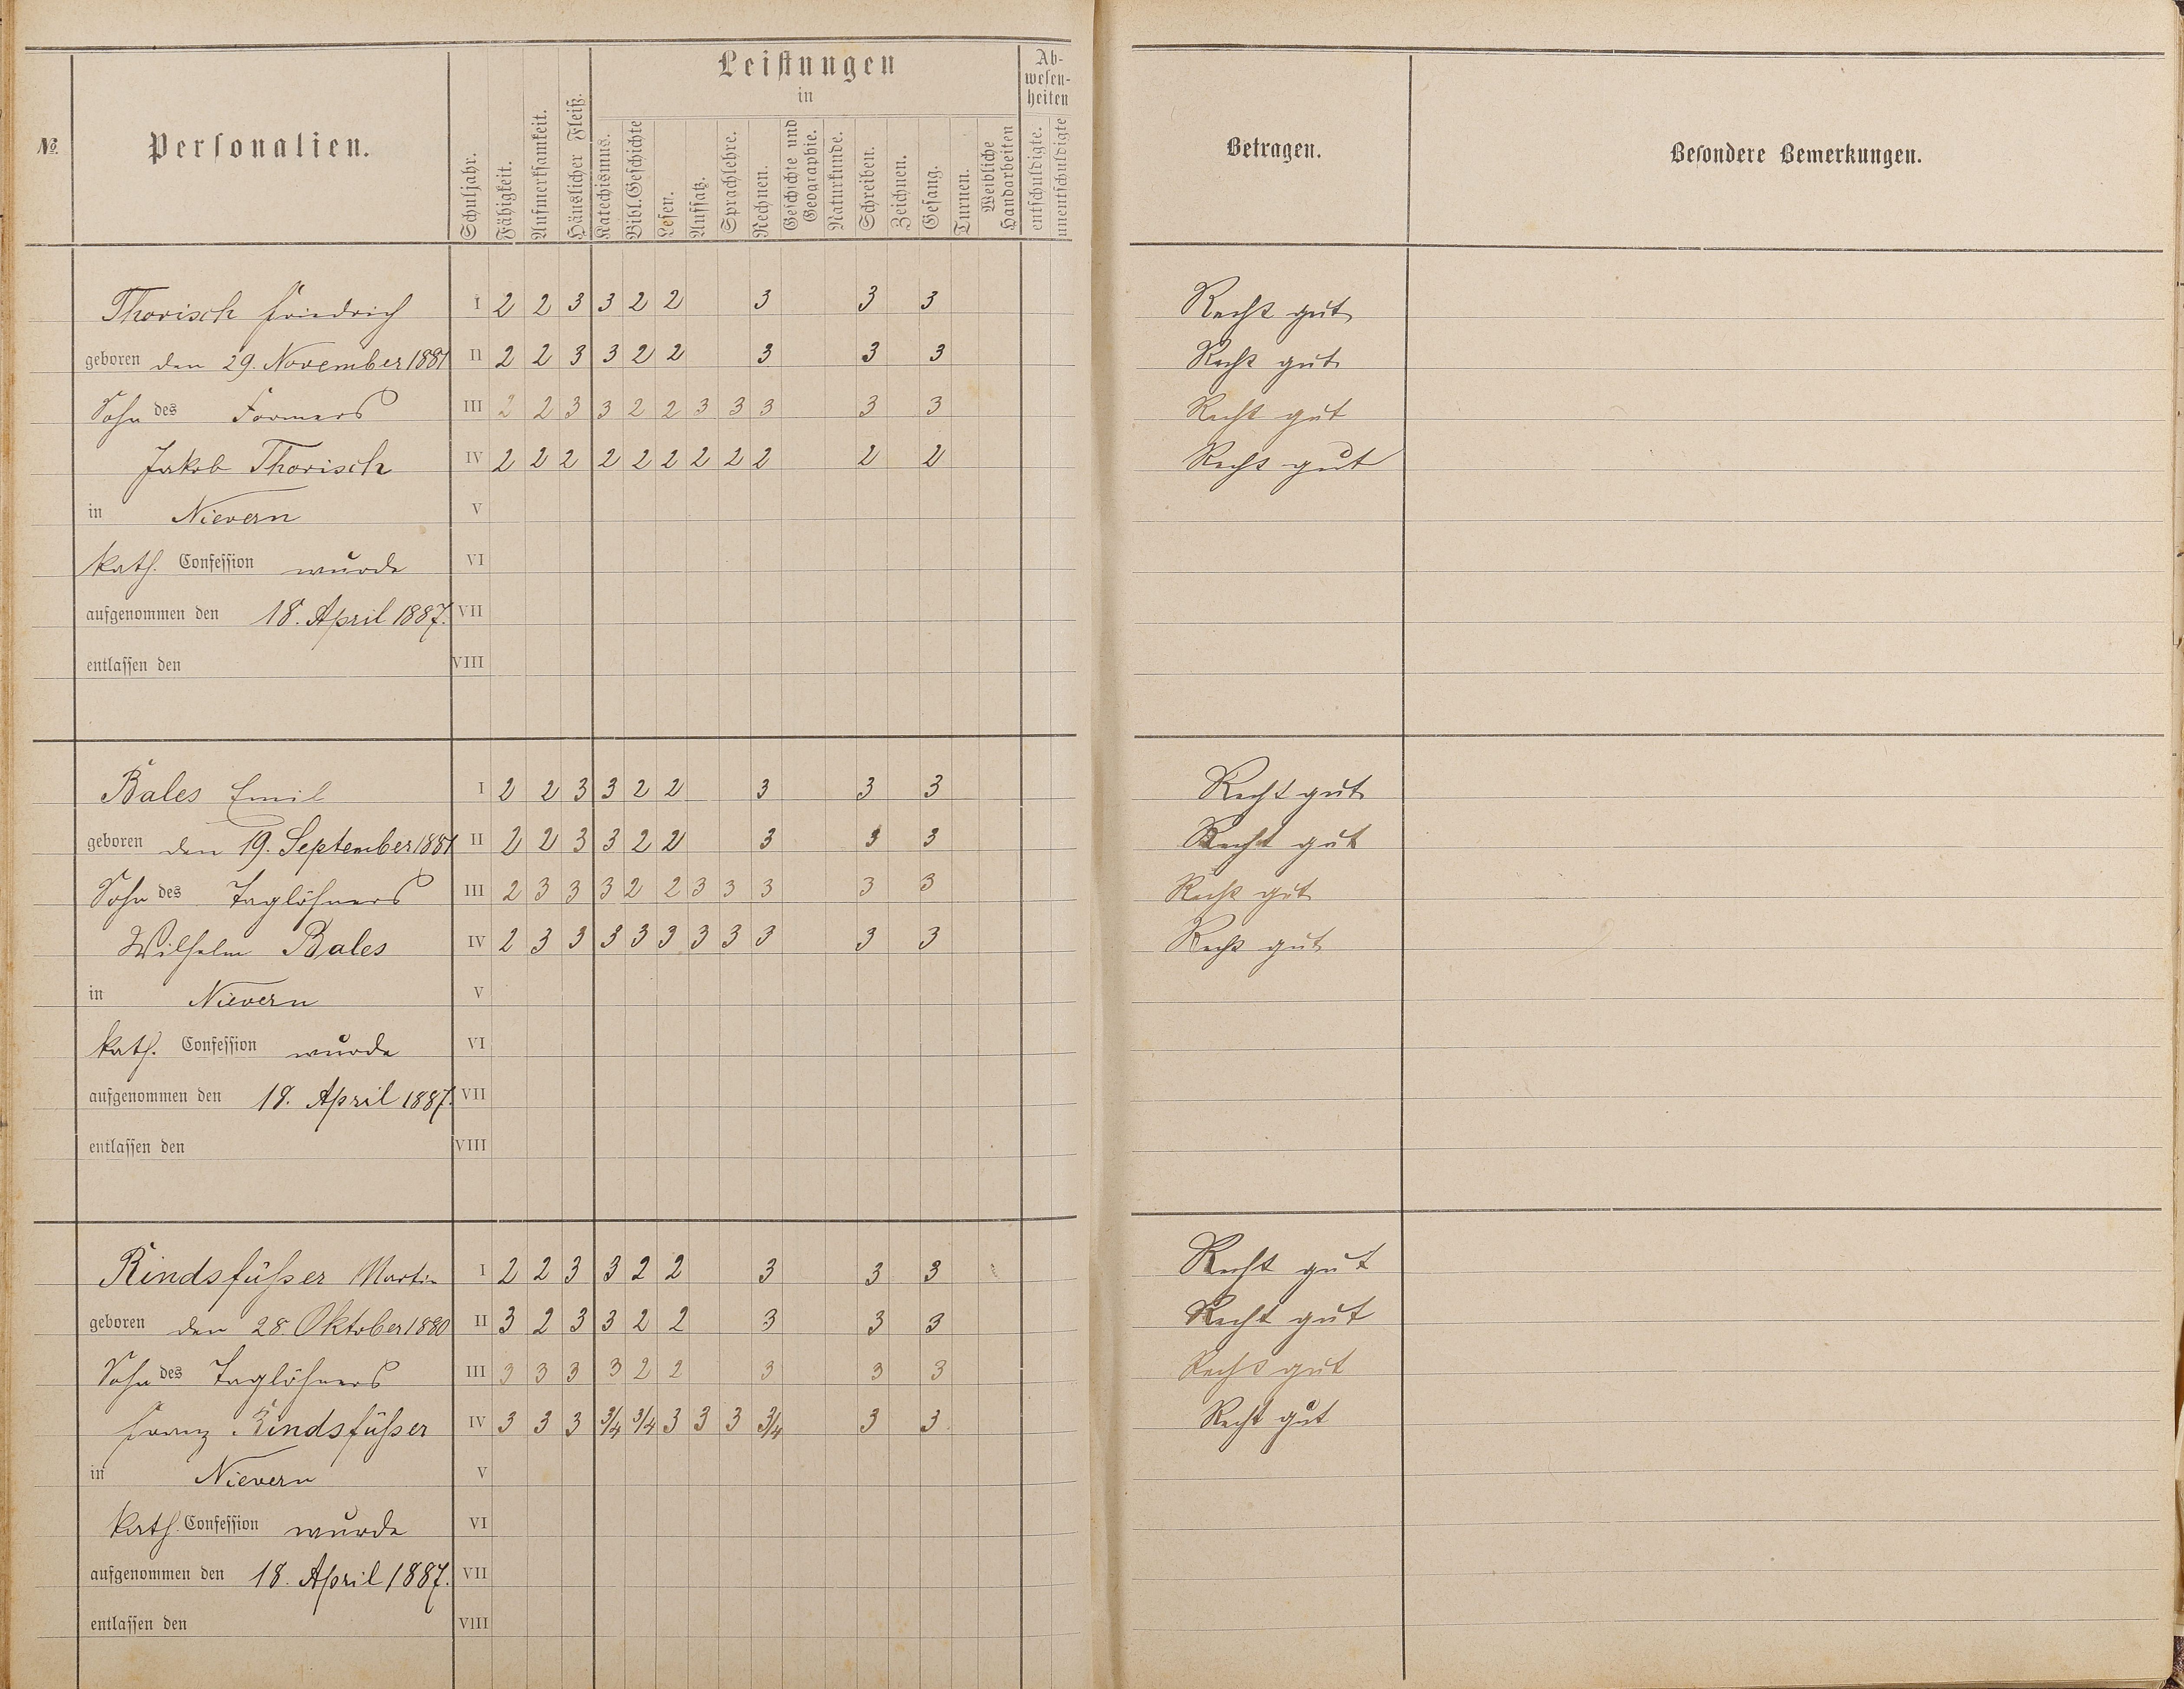 № Personalien. Schuljahr. Fähigkeit. Aufmerksamkeit. Häuslicher Fleiß. Leistungen in Katechismus. Bibl. Geschichte Lesen. Aufsatz. Sprachlehre. Rechnen. Geschichte und Geographie. Naturkunde. Schreiben. Zeichnen. Gesang. Turnen. Weibliche Handarbeiten Abwesenheiten entschuldigte. unentschuldigte Betragen. Besondere Bemerkungen.
Thorisch Friedrich I 2 2 3 3 2 2 3 3 3 Recht gut
geboren den 29. November 1881 II 2 2 3 3 2 2 3 3 3 Recht gut
Sohn des Formers III 2 2 3 3 2 2 3 3 3 3 3 Recht gut
Jakob Thorisch IV 2 2 2 2 2 2 2 2 2 2 2 Recht gut
in Nievern V
kath. Confession wurde VI
aufgenommen den 18. April 1887. VII
entlassen den VIII
Bales Emil I 2 2 3 3 2 2 3 3 3 Recht gut
geboren den 19. September 1881 II 2 2 3 3 2 2 3 3 3 Recht gut
Sohn des Taglöhners III 2 3 3 3 2 2 3 3 3 3 3 Recht gut
Wilhelm Bales IV 2 3 3 3 3 3 3 3 3 3 3 Recht gut
in Nievern V
kath. Confession wurde VI
aufgenommen den 18. April 1887. VII
entlassen den VIII
Rindsfüßer Martin I 2 2 3 3 2 2 3 3 3 Recht gut
geboren den 28. Oktober 1880 II 3 2 3 3 2 2 3 3 3 Recht gut
Sohn des Taglöhners III 3 3 3 3 2 2 3 3 3 Recht gut
Franz Rindsfüßer IV 3 3 3 3/4 3/4 3 3 3 3/4 3 3 Recht gut
in Nievern V
kath. Confession wurde VI
aufgenommen den 18. April 1887. VII
entlassen den VIII